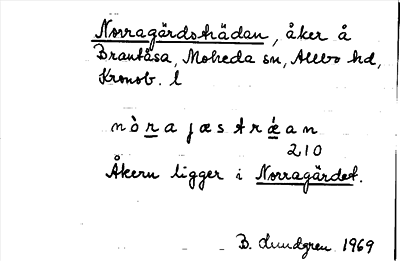 Norragärdsträdan, åker å
Brantåsa, Moheda sn, Allbo hd,
Kronob. l
nòra jæstræ̀an
210
Åkern ligger i Norragärdet.
B. Lundgren 1969